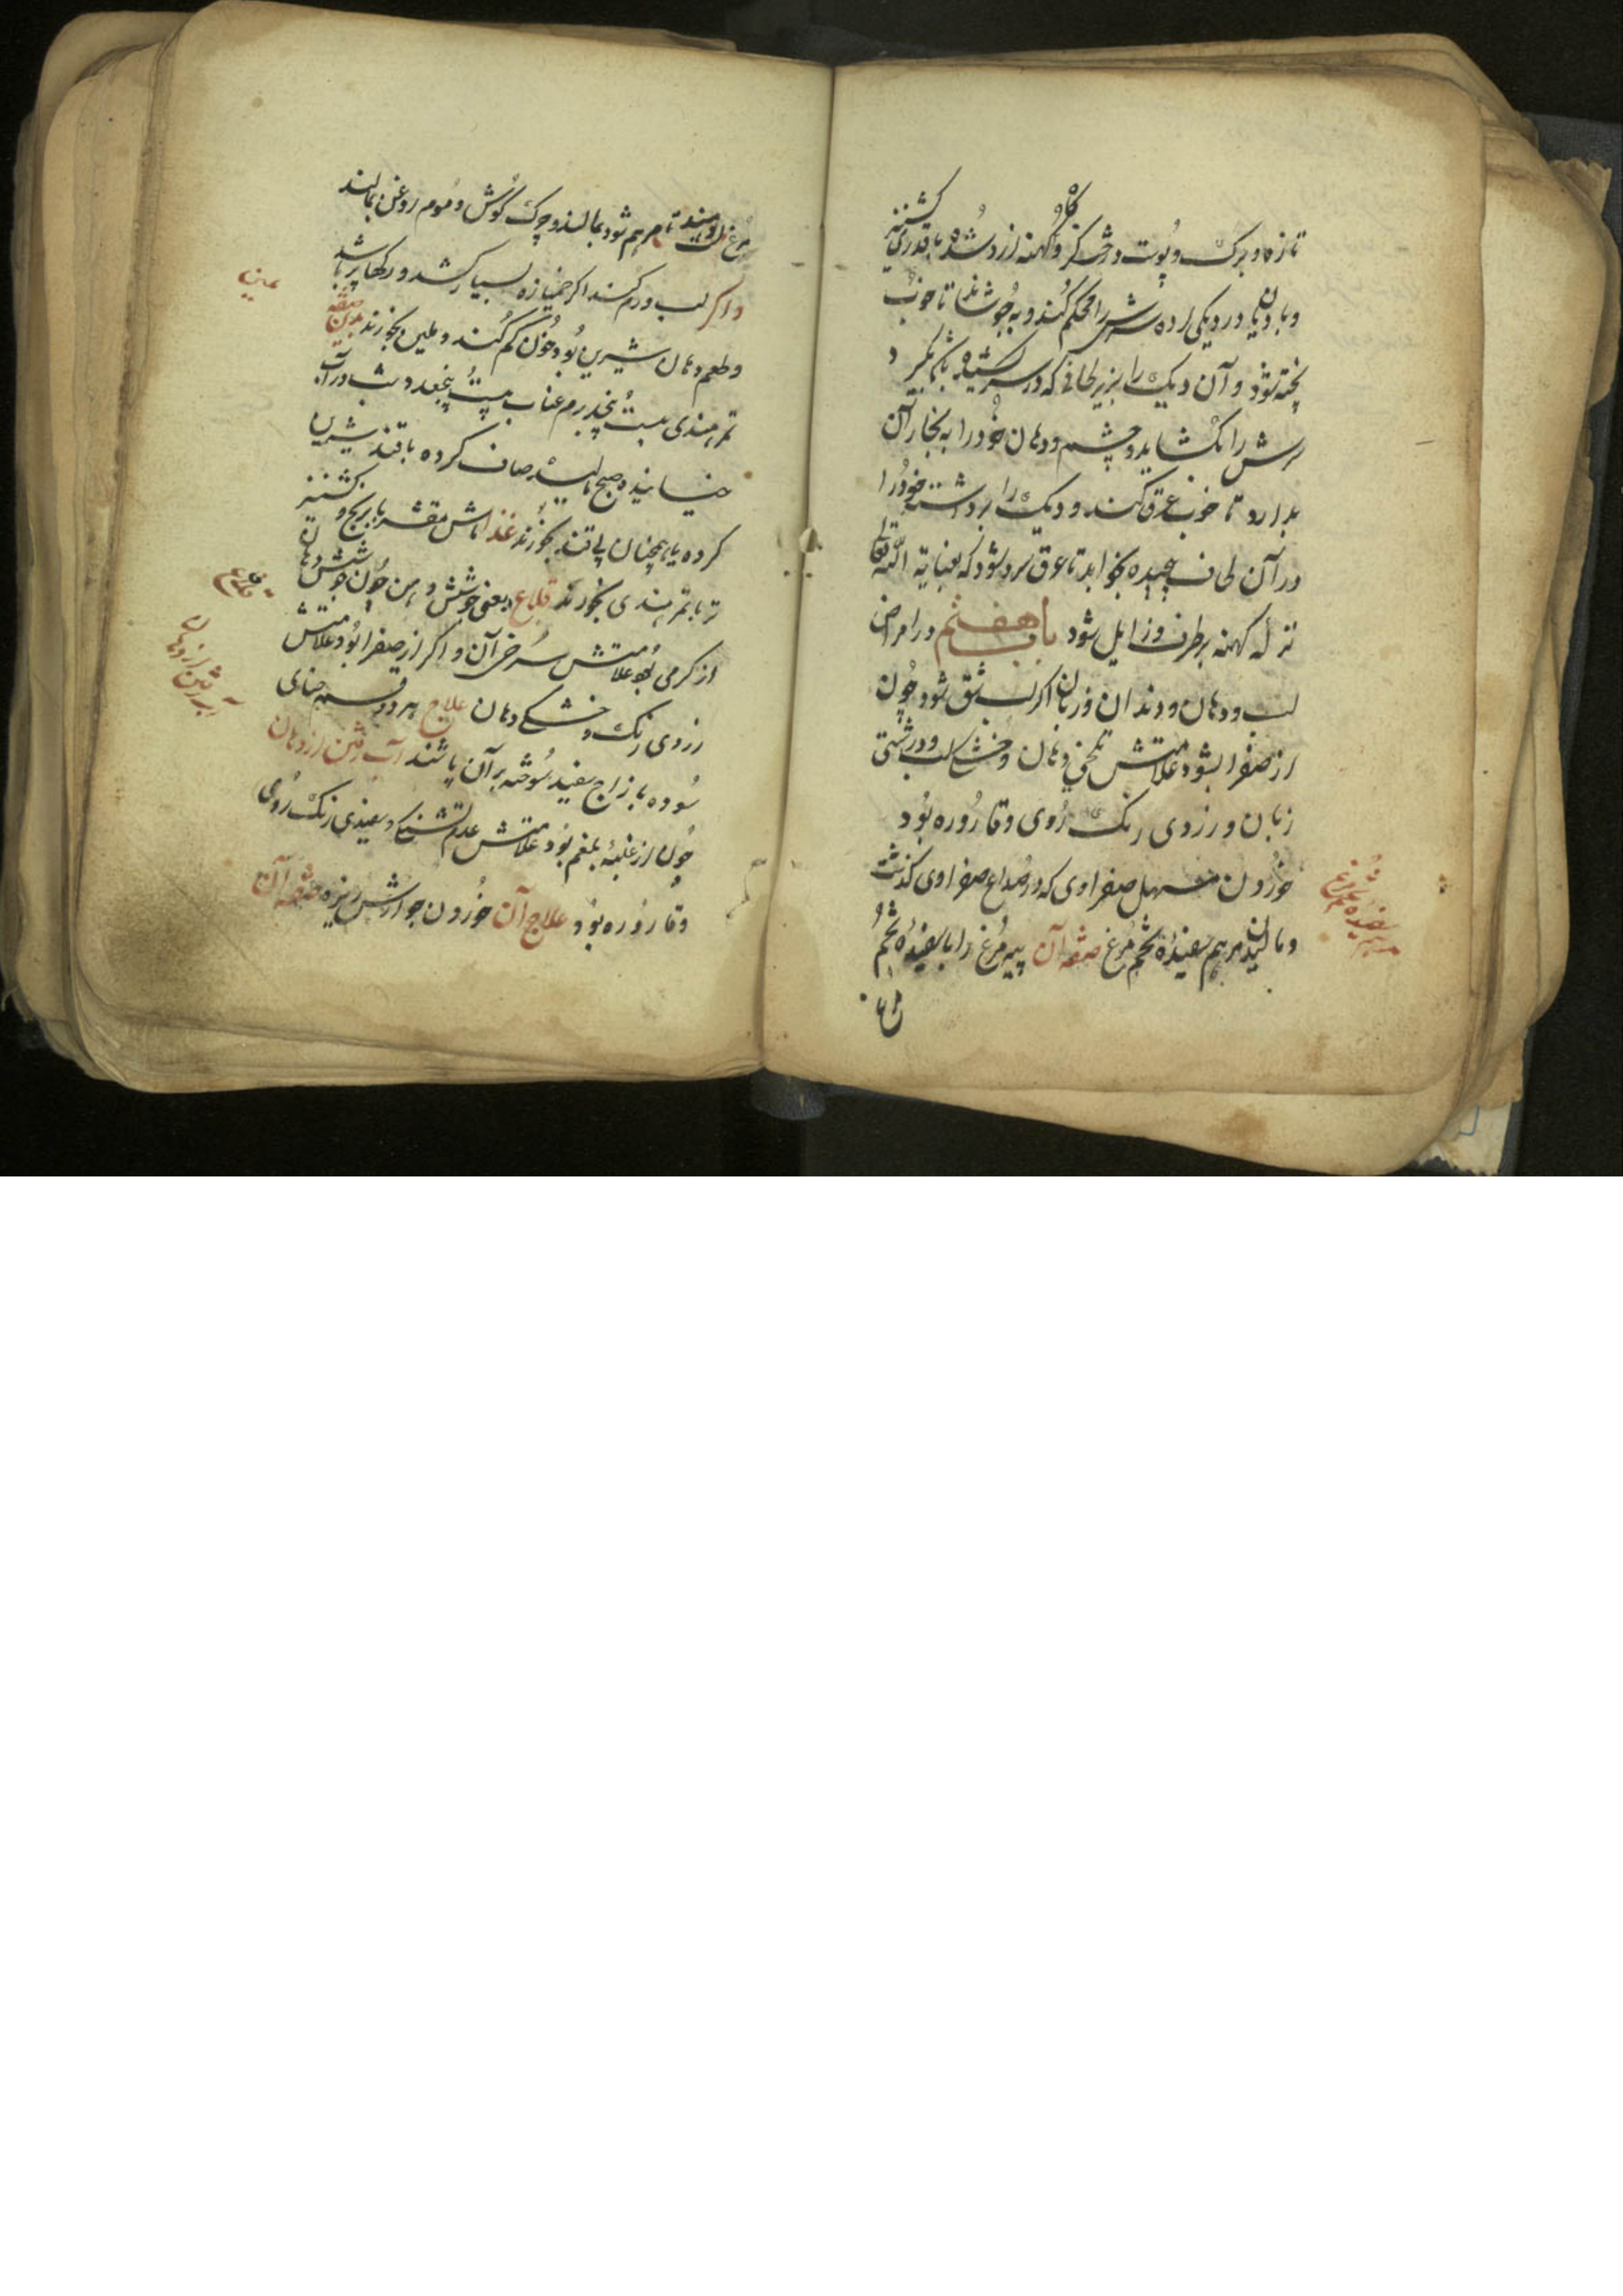 تازه و برک و پوست درخت کز و کاه کهنه ارد شده با قدری کشنیز
و بادیان در دیکی کرده سرش را محکم کنند و به جوشانند تا خوب
پخته شود و آن دیک را بزیر لحافی که در سر کشیده باشد بکیرد و
سرش را بکشاید و چشم و دهان خود را به بخار آن
بدارد تا خوب عرق کند و دیک را برداشته خود را
در آن لحاف پیچیده بخوابد تا عرق سرد شود که بعنایة الله تعالی
نزله کهنه برطرف و زایل شود باب هفتم در امراض
لب و دهان و دندان و زبان اکر لب شق شود چون
از صفرا بود علامتش تلخی دهان و خشکی لب و درشتی
زبان و زردی رنک روی و قاروره بود
خوردن مسهل صفراوی که در صداع صفراوی کذشت
و مالیدن مرهم سفیدهٔ تخم مرغ صفه آن پیه مرغ را با سفیدهٔ تخم
مرهم سفیده تخم مرغ
مرغ
مرغ تا مرهم شود بمالند و چرک کوش و موم روغن بمالند
و اکر لب ورم کند اکر خمیازه بسیار کشد و رکها پر باشد
و طعم دهان شیرین بود خون کم کنند و ملین بخورند بدین صفه
تمر هندی بیست پنجدرم عناب بیست پنجعدد شب در آب
خیسانیده صبح مالیده صاف کرده با قند شیرین
کرده یا همچنان بی قند بخورند غذا ماش مقشر با برنج و کشنیز
تر با تمر هندی بخورند قلاع یعنی جوشش دهن چون جوشش دهان
از کرمی بود علامتش سرخی آن و اکر از صفرا بود علامتش
زردی رنک و خشکی دهان علاج هر دو قسم حنای
سوده با زاج سفید سوخته بر آن پاشند آب رفتن از دهان
چون از غلبهٔ بلغم بود علامتش عدم تشنکی و سفیدی رنک روی
و قاروره بود علاج آن خوردن جوارش زیره صفه آن
ملین
قلاع
آب رفتن از دهان